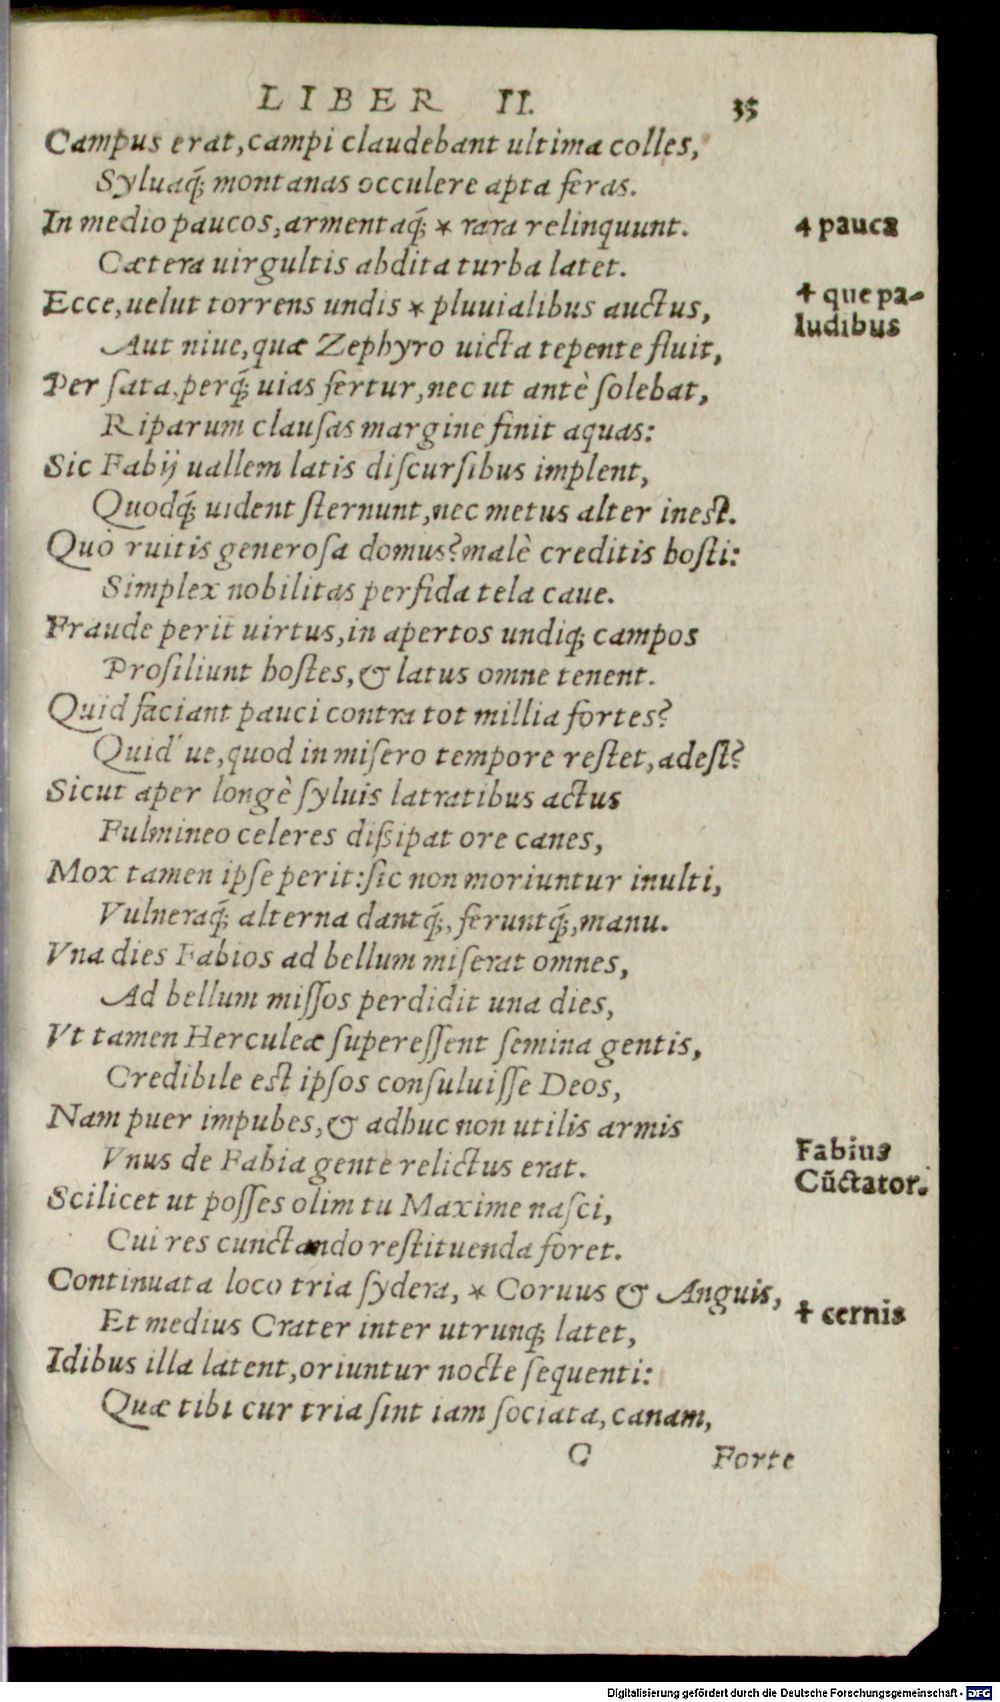 LIBER II. 35
Campus erat, campi claudebant ultima colles,
Syluaq́; montanas occulere apta feras.
In medio paucos, armentaq́; * rara relinquunt. 4 pauca
Cætera uirgultis abdita turba latet.
Ecce, uelut torrens undis * pluuialibus auctus, ✝ que pa-
ludibus
Aut niue, quæ Zephyro uicta tepente fluit,
Per sata, perq́; uias fertur, nec ut antè solebat,
Riparum clausas margine finit aquas:
Sic Fabij uallem latis discursibus implent,
Quodq́; uident sternunt, nec metus alter inest.
Quò ruitis generosa domus? malè creditis hosti:
Simplex nobilitas perfida tela caue.
Fraude perit uirtus, in apertos undiq; campos
Prosiliunt hostes, & latus omne tenent.
Quid faciant pauci contra tot millia fortes?
Quid' ue, quod in misero tempore restet, adest?
Sicut aper longè syluis latratibus actus
Fulmineo celeres dißipat ore canes,
Mox tamen ipse perit: sic non moriuntur inulti,
Vulneraq́; alterna dantq́;, feruntq́;, manu.
Vna dies Fabios ad bellum miserat omnes,
Ad bellum missos perdidit una dies,
Vt tamen Herculeæ superessent semina gentis,
Credibile est ipsos consuluisse Deos,
Nam puer impubes, & adhuc non utilis armis
Vnus de Fabia gente relictus erat. Fabius
Cũctator.
Scilicet ut posses olim tu Maxime nasci,
Cui res cunctando restituenda foret.
Continuata loco tria sydera, * Coruus & Anguis, ✝ cernis
Et medius Crater inter utrunq; latet,
Idibus illa latent, oriuntur nocte sequenti:
Quæ tibi cur tria sint iam sociata, canam,
C Forte
Digitalisierung gefördert durch die Deutsche Forschungsgemeinschaft - DFG